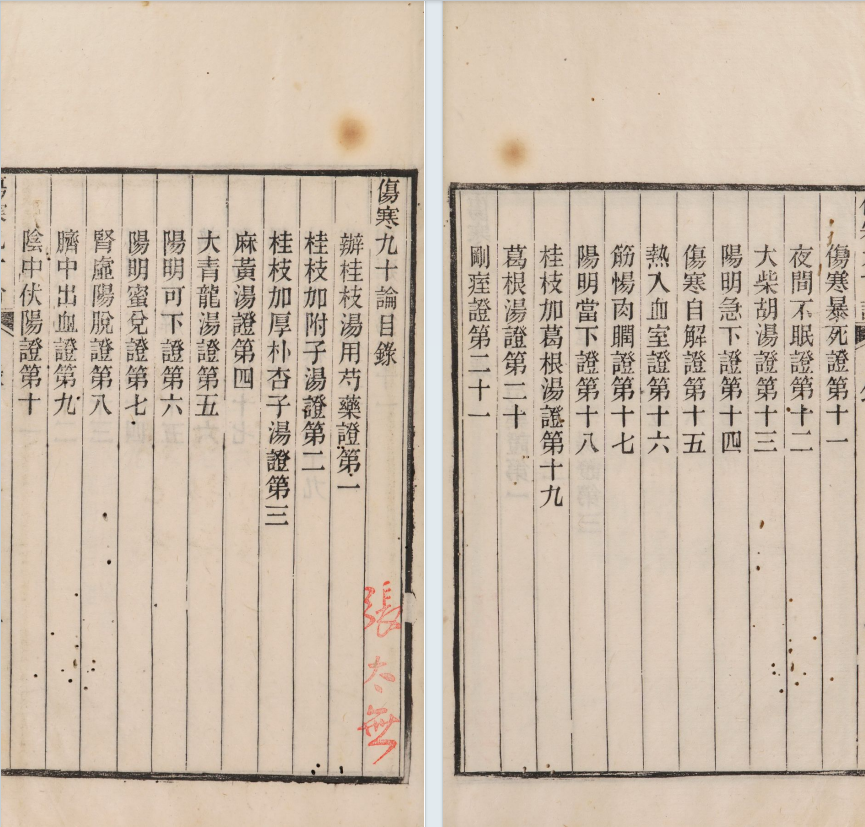 傷寒九十論目錄
辨桂枝湯用芍藥證第一
桂枝加附子湯證第二
桂枝加厚朴杏子湯證第三
麻黃湯證第四
大青龍湯證第五
陽明可下證第六
陽明蜜兌證第七
腎虛陽脫證第八
臍中出血證第九
陰中伏陽證第十
張
無
傷寒暴死證第十一
夜間不眠證第十二
大柴胡湯證第十三
陽明急下證第十四
傷寒自解證第十五
熱入血室證第十六
筋惕肉瞤證第十七
陽明當下證第十八
桂枝加葛根湯證第十九
葛根湯證第二十
剛痓證第二十一